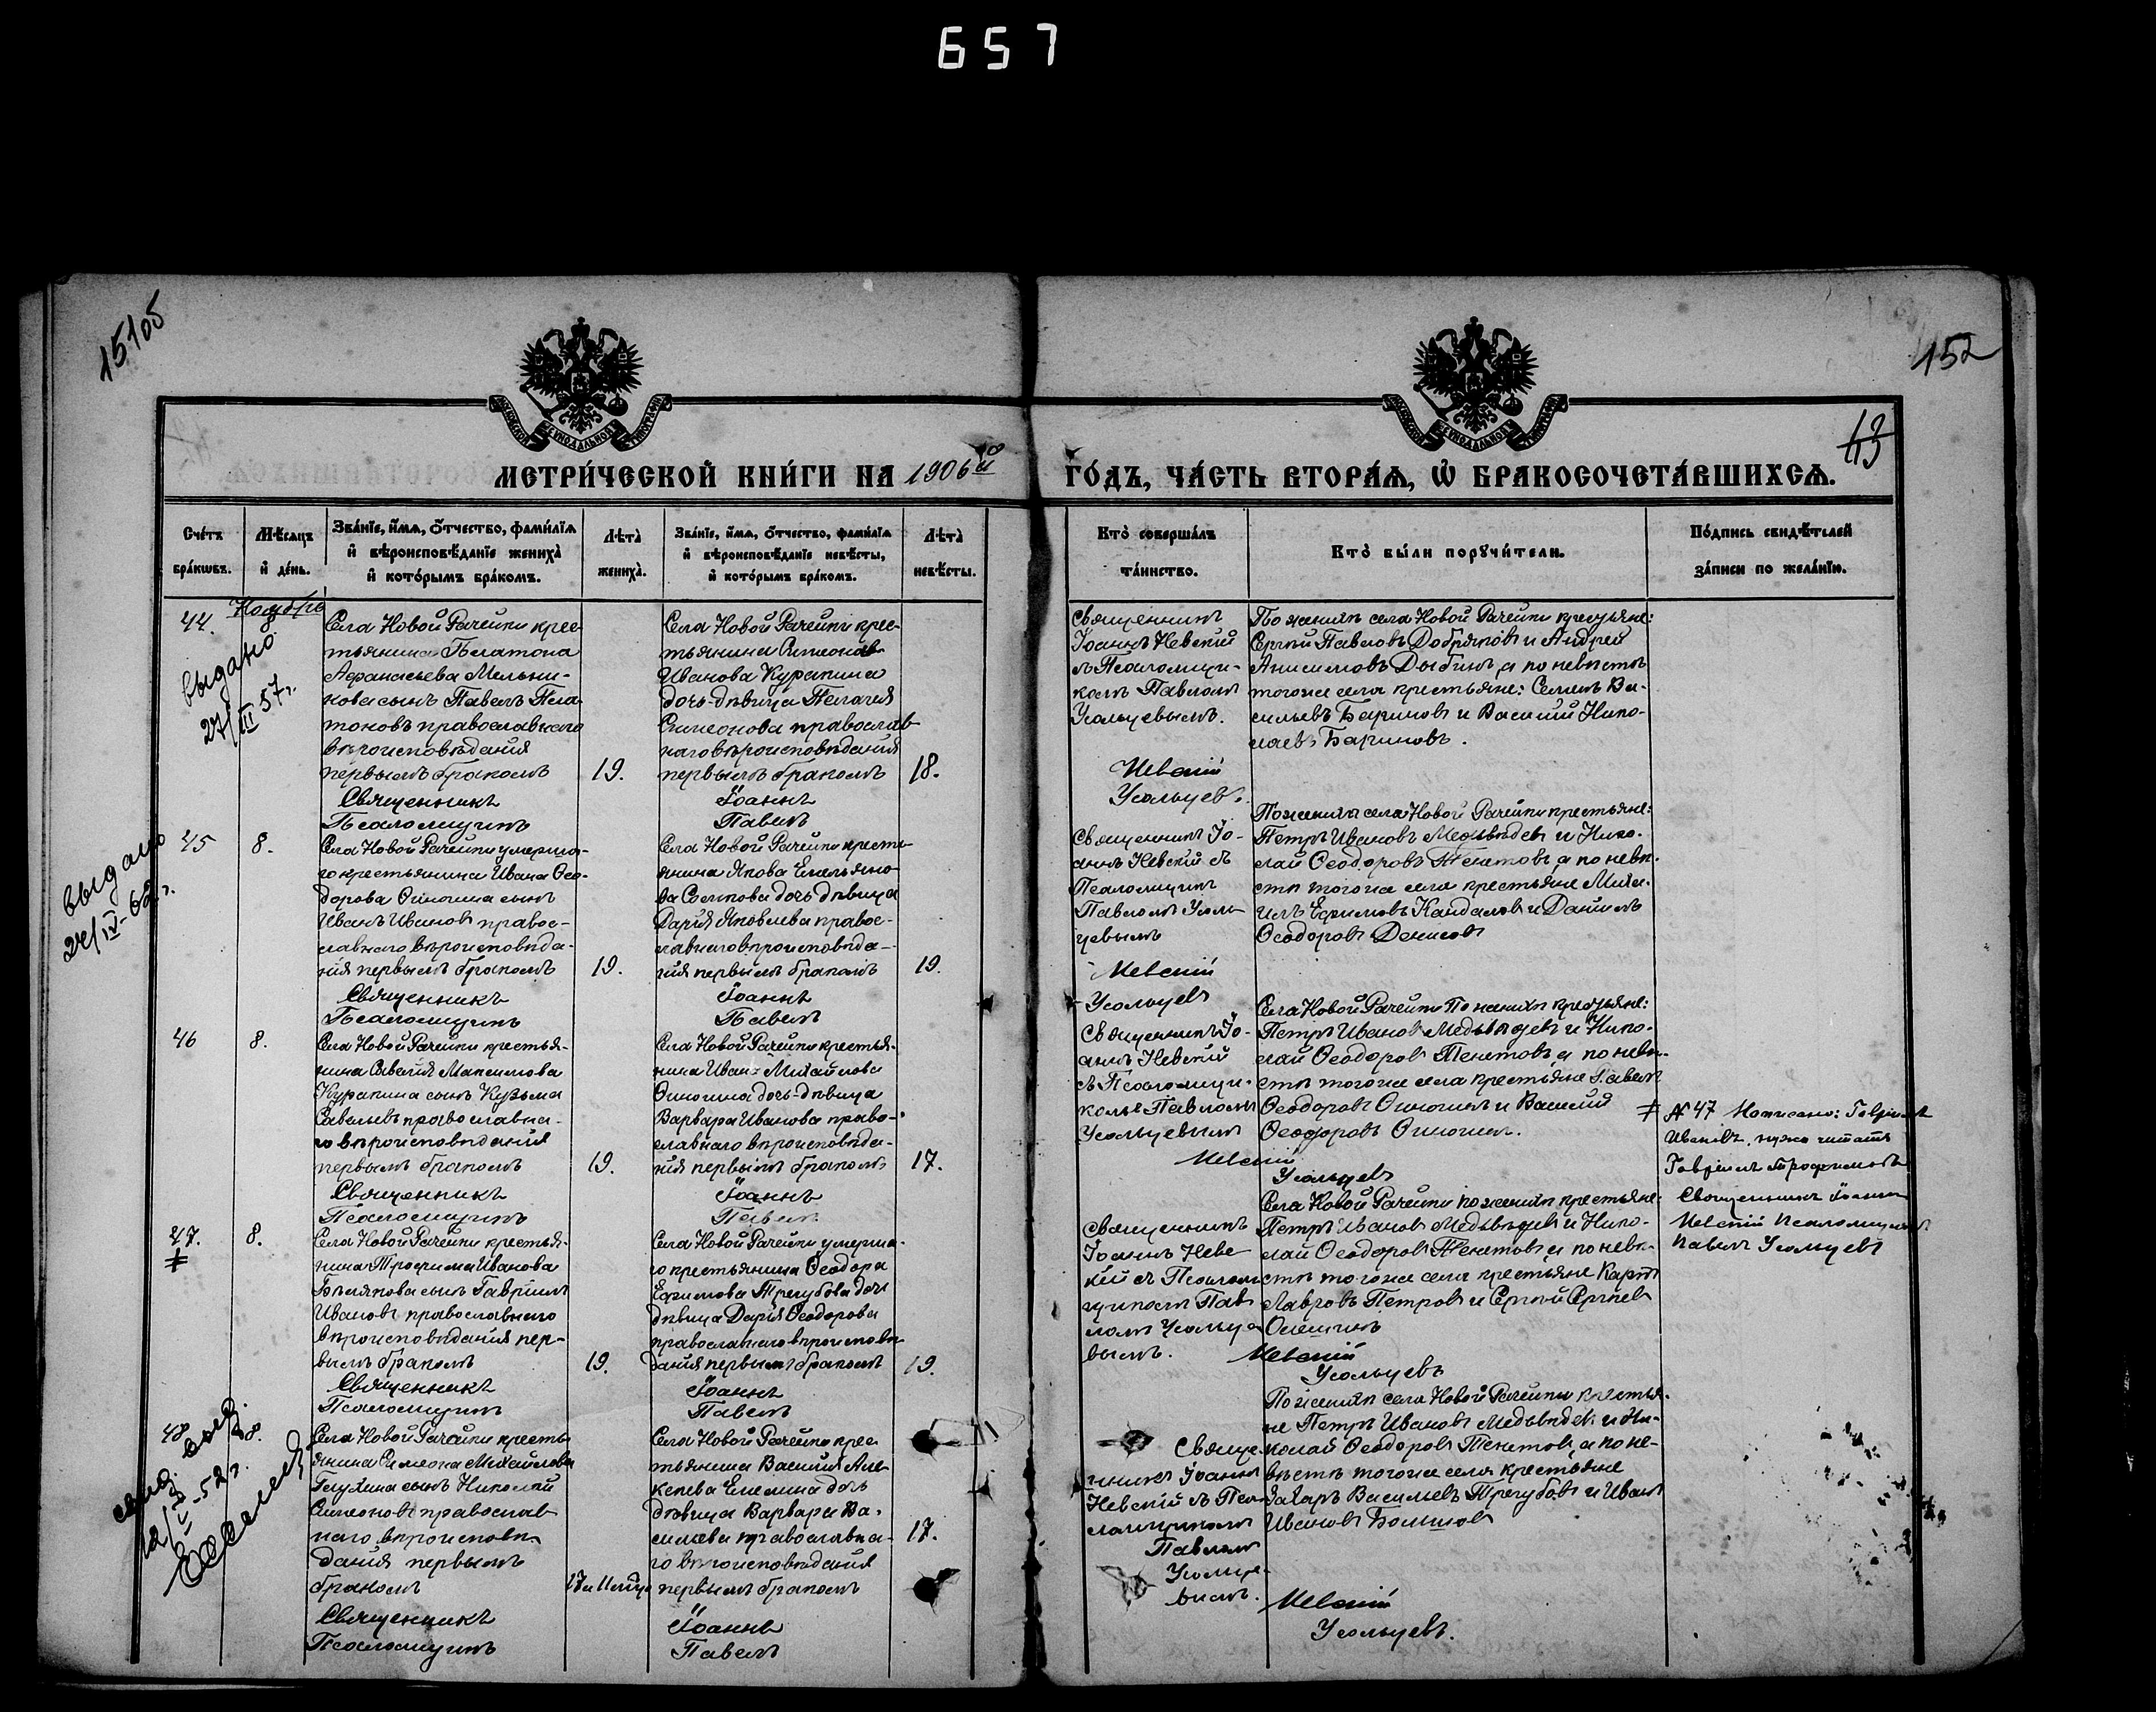 657
15105
152
13
МЕТРИ́ЧЕСКОЙ КНИ́ГИ НА 1906й
ГО́ДЪ, ЧА́СТЬ ВТОРА́Я, Ѡ БРАКОСОЧЕТА́ВШИХСЯ.
Сче́тъ бра́кѡвъ.
Мѣ́сяцъ и де́нь.
Зва́нїе, и́мя, ѻ́тчество, фами́лїя и вѣроисповѣ́данїе жениха̀ и кото́рымъ бра́комъ.
Лѣта̀ жениха̀.
Зва́нїе, и́мя, ѻ́тчество, фами́лїя и вѣроисповѣ́данїе невѣ́сты, и кото́рымъ бра́комъ.
Лѣта̀ невѣ́сты.
Кто̀ соверша́лъ та́инство.
Кто̀ бы́ли порꙋчи́тели.
По́дпись свидѣ́телей за́писи по жела́нїю.
44.
Ноябрь
8
выдано
27/III 57 г.
Села Новой Рачейки крес-
тьянина Платона
Афанасьева Мельни-
кова сынъ Павелъ Пла-
тоновъ православнаго
вѣроисповѣдания
первымъ бракомъ
19.
Священникъ
Псаломщикъ
Села Новой Рачейки крес-
тьянина Симеона
Иванова Курапина
дочь-дѣвица Пелагея
Симеонова православ-
наго вѣроисповѣдания
первымъ бракомъ
18.
Іоаннъ
Павелъ
Священникъ
Іоаннъ Невский
съ Псаломщи-
комъ Павломъ
Усольцевымъ.
Невский
Усольцевъ.
По женихѣ села Новой Рачейки крестьяне:
Сергѣй Павловъ Добряковъ и Андрей
Анисимовъ Дыбинъ, а по невѣстѣ
тогоже села крестьяне: Семенъ Ва-
сильевъ Бариновъ и Василий Нико-
лаевъ Бариновъ.
45
8.
выдано
Села Новой Рачейки умерша-
го крестьянина Ивана Ѳео-
дорова Синюгина сынъ
Иванъ Ивановъ правос-
лавнаго вѣроисповѣда-
ния первымъ бракомъ
19.
Священникъ
Псаломщикъ
Села Новой Рачейки кресть-
янина Якова Емельяно-
ва дочь дѣвица
Дария Яковлева правос-
лавнаго вѣроисповѣда-
ния первымъ бракомъ
19.
Іоаннъ
Павелъ
Священникъ Іо-
аннъ Невский съ
Псаломщикомъ
Павломъ Усоль-
цевымъ
Невский
Усольцевъ
По женихѣ села Новой Рачейки крестьяне:
Петръ Ивановъ Медвѣдевъ и Нико-
лай Ѳеодоровъ Тенетовъ, а по невѣ-
стѣ тогоже села крестьяне Миха-
илъ Ефимовъ Кандаловъ и Даниилъ
Ѳеодоровъ Денисовъ
46
8.
Села Новой Рачейки крестья-
нина Савелия Максимова
Курапина сынъ Кузьма
Савельевъ православна-
го вѣроисповѣдания
первымъ бракомъ
19.
Священникъ
Псаломщикъ
Села Новой Рачейки крестья-
нина Ивана Михайлова
Синюгина дочь-дѣвица
Варвара Иванова право-
славнаго вѣроисповѣда-
ния первымъ бракомъ
17.
Іоаннъ
Павелъ
Священникъ Іо-
аннъ Невский
съ Псаломщи-
комъ Павломъ
Усольцевымъ
Невский
Усольцевъ
Села Новой Рачейки По женихѣ крестьяне:
Петръ Ивановъ Медвѣдевъ и Нико-
лай Ѳеодоровъ Тенетовъ, а по невѣ-
стѣ тогоже села крестьяне Павелъ
Ѳеодоровъ Синюгинъ и Василий
Ѳеодоровъ Синюгинъ.
≠ № 47 Написано: Гавриилъ
Ивановъ, нужно читать
Гавриилъ Трофимовъ
Священникъ Іоаннъ
Невский Псаломщикъ
Павелъ Усольцевъ
47.
≠
8.
Села Новой Рачейки крестья-
нина Трофима Иванова
Бѣлякова сынъ Гавриилъ
Ивановъ православнаго
вѣроисповѣдания пер-
вымъ бракомъ
19.
Священникъ
Псаломщикъ
Села Новой Рачейки умерша-
го крестьянина Ѳеодора
Ефимова Трегубова дочь
дѣвица Дарья Ѳеодорова
православнаго вѣроисповѣ-
дания первымъ бракомъ
19.
Іоаннъ
Павелъ
Священникъ
Іоаннъ Невс-
кий съ Псалом-
щикомъ Пав-
ломъ Усольце-
вымъ.
Невский
Усольцевъ
Села Новой Рачейки по женихѣ крестьяне:
Петръ Ивановъ Медвѣдевъ и Нико-
лай Ѳеодоровъ Тенетовъ, а по невѣ-
стѣ тогоже села крестьяне Карпъ
Лавровъ Петровъ и Сергѣй Сергѣевъ
48
8.
12/II-52 г.
Села Новой Рачейки кресть-
янина Симеона Михайлова
Глухина сынъ Николай
Симеоновъ православ-
наго вѣроисповѣ-
дания первымъ
бракомъ
Священникъ
Псаломщикъ
Села Новой Рачейки крес-
тьянина Василия Але-
ксѣева Емелина дочь
дѣвица Варвара Ва-
сильева православна-
го вѣроисповѣдания
первымъ бракомъ
17.
Іоаннъ
Павелъ
Свяще-
нникъ Іоаннъ
Невский съ Пса-
ломщикомъ
Павломъ
Усольце-
вымъ.
Невский
Усольцевъ.
По женихѣ села Новой Рачейки крестья-
не Петръ Ивановъ Медвѣдевъ и Ни-
колай Ѳеодоровъ Тенетовъ, а по не-
вѣстѣ тогоже села крестьяне
Захаръ Васильевъ Трегубовъ и Иванъ
Ивановъ